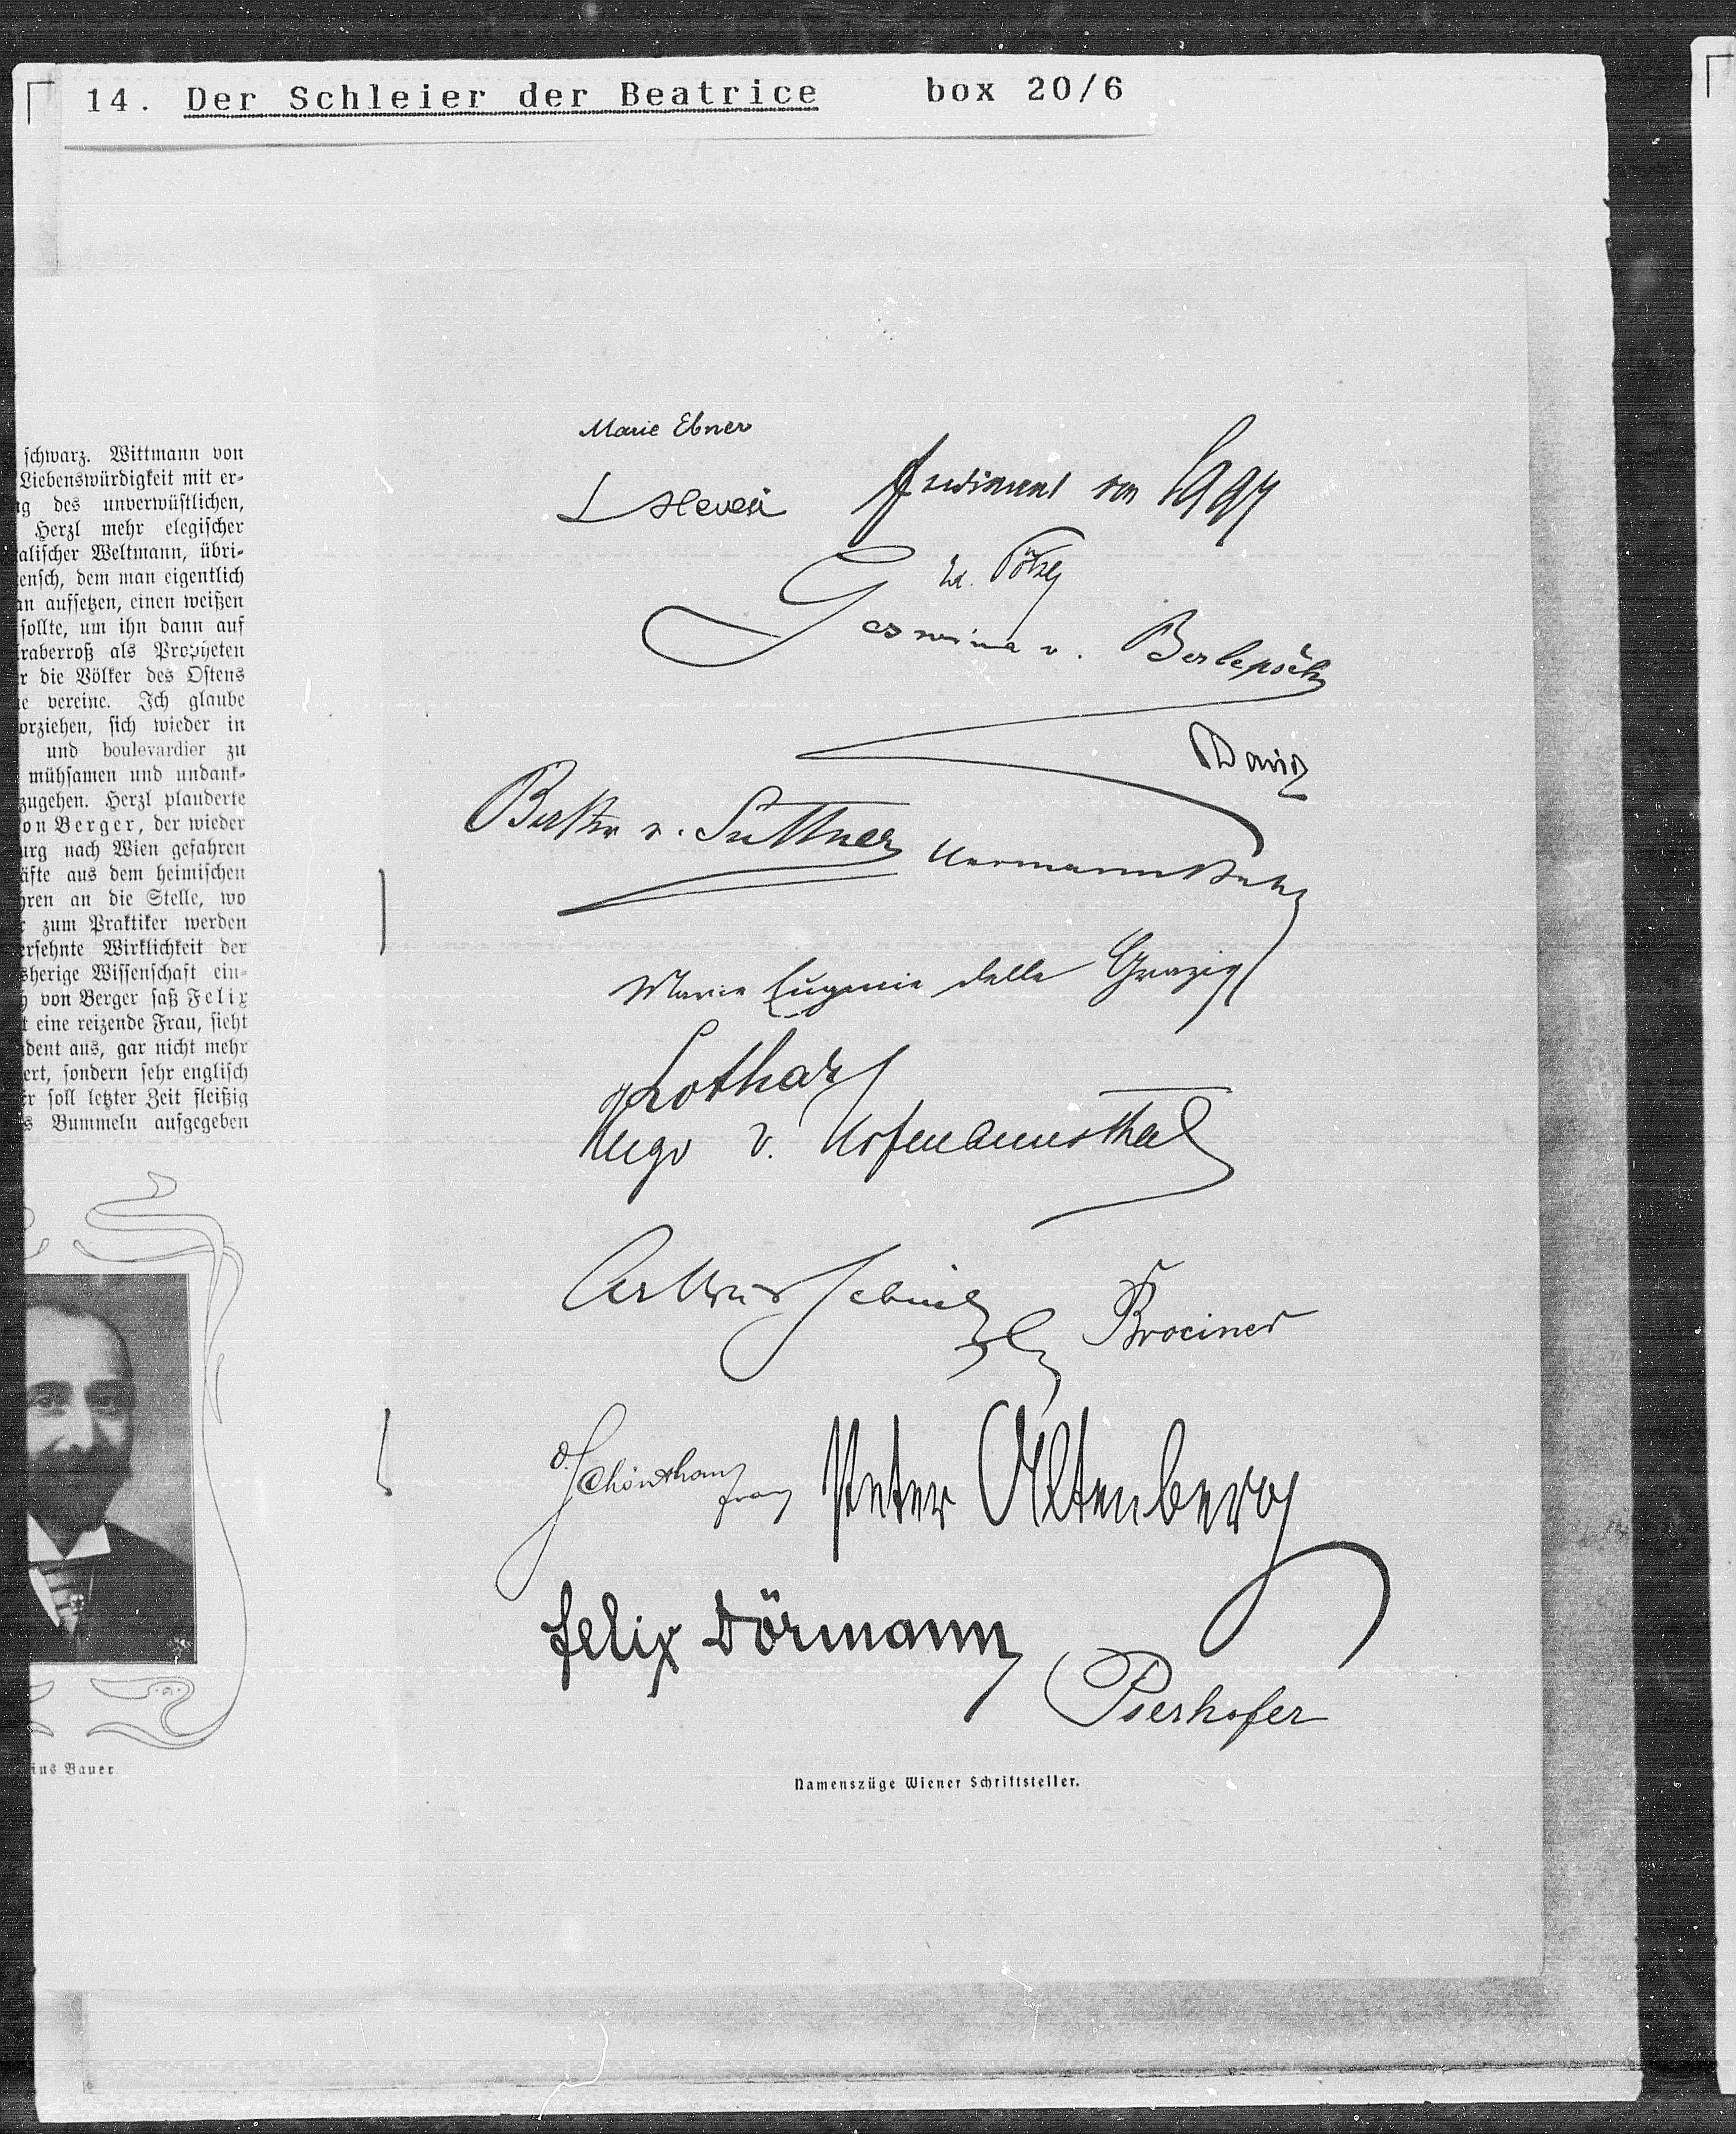 14. Der Schleier der Beatrice box 20/6
schwarz. Wittmann von
Liebenswürdigkeit mit er-
g des unverwüstlichen,
Herzl mehr elegischer
alischer Weltmann, übri-
ensch, dem man eigentlich
an aufsetzen, einen weißen
sollte, um ihn dann auf
raberroß als Propheten
r die Völker des Ostens
e vereine. Ich glaube
orziehen, sich wieder in
und boulevardier zu
mühsamen und undank-
zugehen. Herzl plauderte
on Berger, der wieder
urg nach Wien gefahren
äfte aus dem heimischen
hren an die Stelle, wo
r zum Praktiker werden
ersehnte Wirklichkeit der
sherige Wissenschaft ein-
h von Berger saß Felix
t eine reizende Frau, sieht
dent aus, gar nicht mehr
ert, sondern sehr englisch
Er soll letzter Zeit fleißig
s Bummeln aufgegeben
ius Bauer
Marie Ebner
L Hevesi
Ferdinand von Saar
Ed. Pötzl
Goswina v. Berlepsch
David
Bertha v. Suttner
Hermann Bahr
Marie Eugenie delle Grazie
Lothar
Hugo v. Hofmannsthal
Arthur Schnitzler
Brociner
v. Schönthan
Franz
Peter Altenberg
Felix Dörmann
Pserhofer
Namenszüge Wiener Schriftsteller.